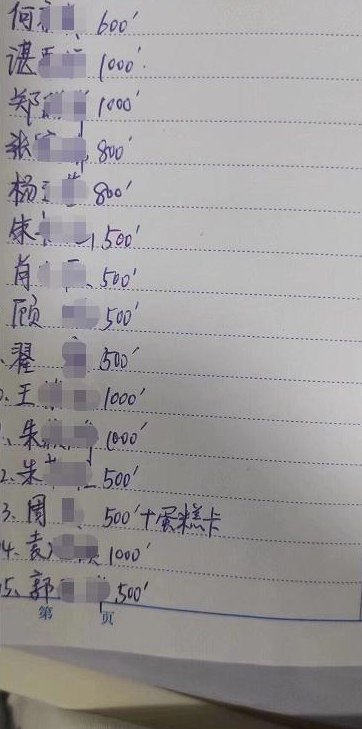 何 600'
谌 1000'
郑 1000'
张 800'
杨 800'
朱 500'
肖 500'
顾 500'
翟 500'
王 1000'
朱 1000'
2. 朱 500'
3. 周 500'+蛋糕卡
4. 袁 1000'
5. 郭 500'
第 页